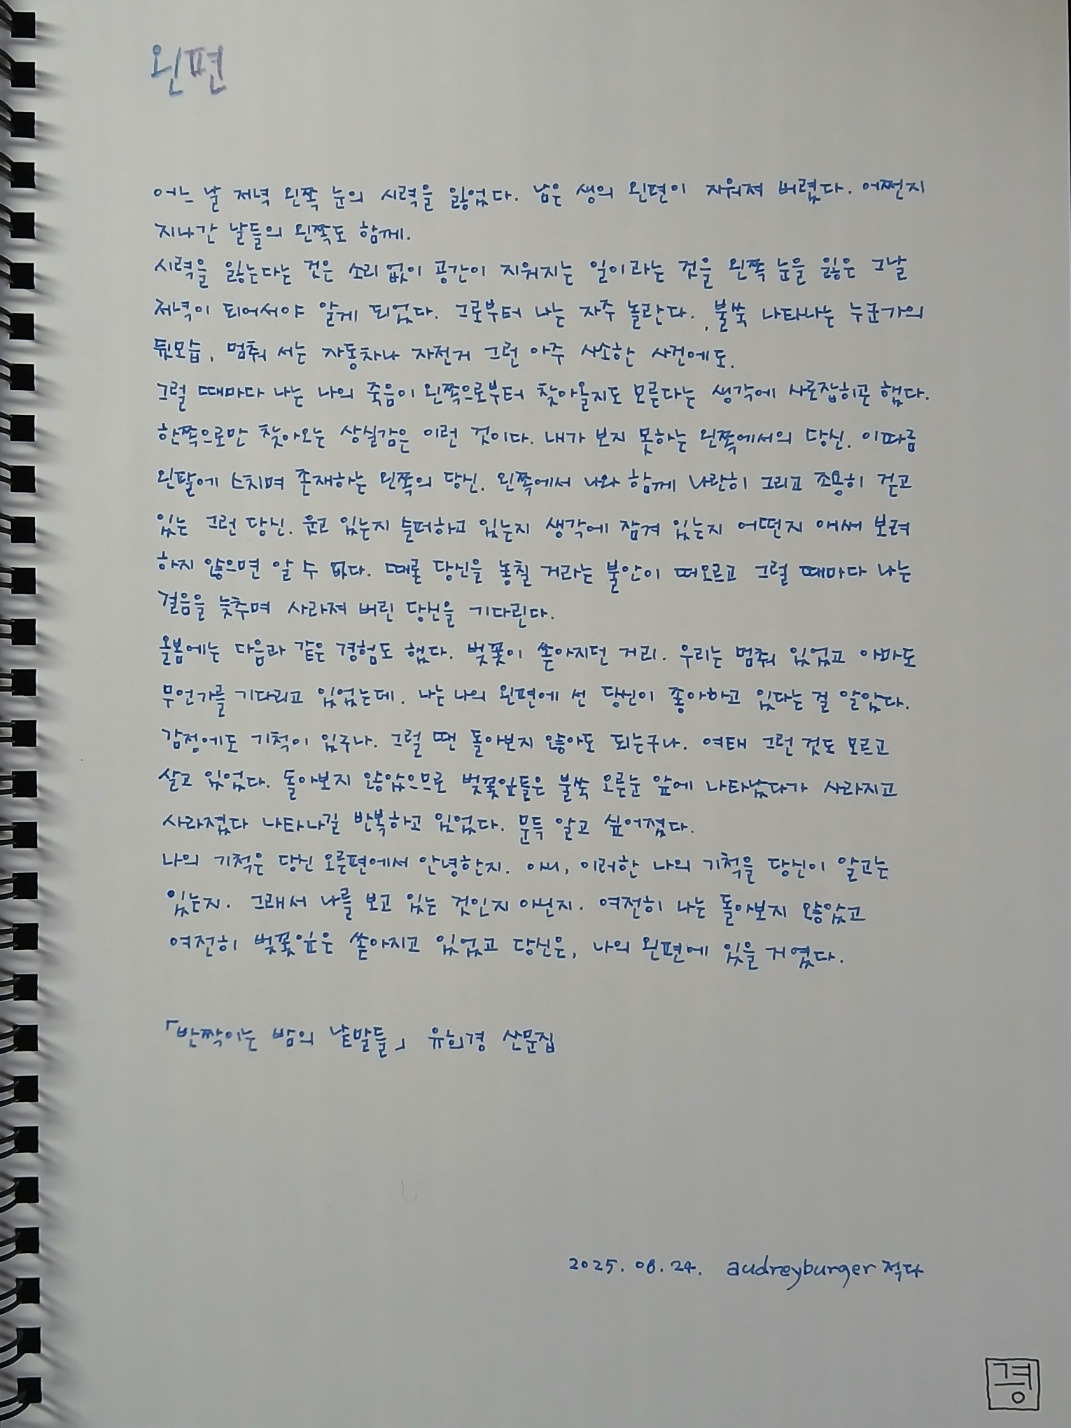 왼편
어느 날 저녁 왼쪽 눈의 시력을 잃었다. 남은 생의 왼편이 지워져 버렸다. 어쩐지
지나간 날들의 왼쪽도 함께.
시력을 잃는다는 것은 소리 없이 공간이 지워지는 일이라는 것을 왼쪽 눈을 잃은 그날
저녁이 되어서야 알게 되었다. 그로부터 나는 자주 놀란다. 불쑥 나타나는 누군가의
뒷모습, 멈춰 서는 자동차나 자전거 그런 아주 사소한 사건에도.
그럴 때마다 나는 나의 죽음이 왼쪽으로부터 찾아올지도 모른다는 생각에 사로잡히곤 했다.
한쪽으로만 찾아오는 상실감은 이런 것이다. 내가 보지 못하는 왼쪽에서의 당신. 이따금
왼팔에 스치며 존재하는 왼쪽의 당신. 왼쪽에서 나와 함께 나란히 그리고 조용히 걷고
있는 그런 당신. 웃고 있는지 슬퍼하고 있는지 생각에 잠겨 있는지 어떤지 애써 보려
하지 않으면 알 수 없다. 때론 당신을 놓칠 거라는 불안이 떠오르고 그럴 때마다 나는
걸음을 늦추며 사라져 버린 당신을 기다린다.
올봄에는 다음과 같은 경험도 했다. 벚꽃이 쏟아지던 거리. 우리는 멈춰 있었고 아마도
무언가를 기다리고 있었는데. 나는 나의 왼편에 선 당신이 좋아하고 있다는 걸 알았다.
감정에도 기척이 있구나. 그럴 땐 돌아보지 않아도 되는구나. 여태 그런 것도 모르고
살고 있었다. 돌아보지 않았으므로 벚꽃잎들은 불쑥 오른눈 앞에 나타났다가 사라지고
사라졌다 나타나길 반복하고 있었다. 문득 알고 싶어졌다.
나의 기척은 당신 오른편에서 안녕한지. 아니, 이러한 나의 기척을 당신이 알고는
있는지. 그래서 나를 보고 있는 것인지 아닌지. 여전히 나는 돌아보지 않았고
여전히 벚꽃잎은 쏟아지고 있었고 당신은, 나의 왼편에 있을 거였다.
「반짝이는 밤의 낱말들」 유희경 산문집
2025. 08. 24. audreyburger 적다
경